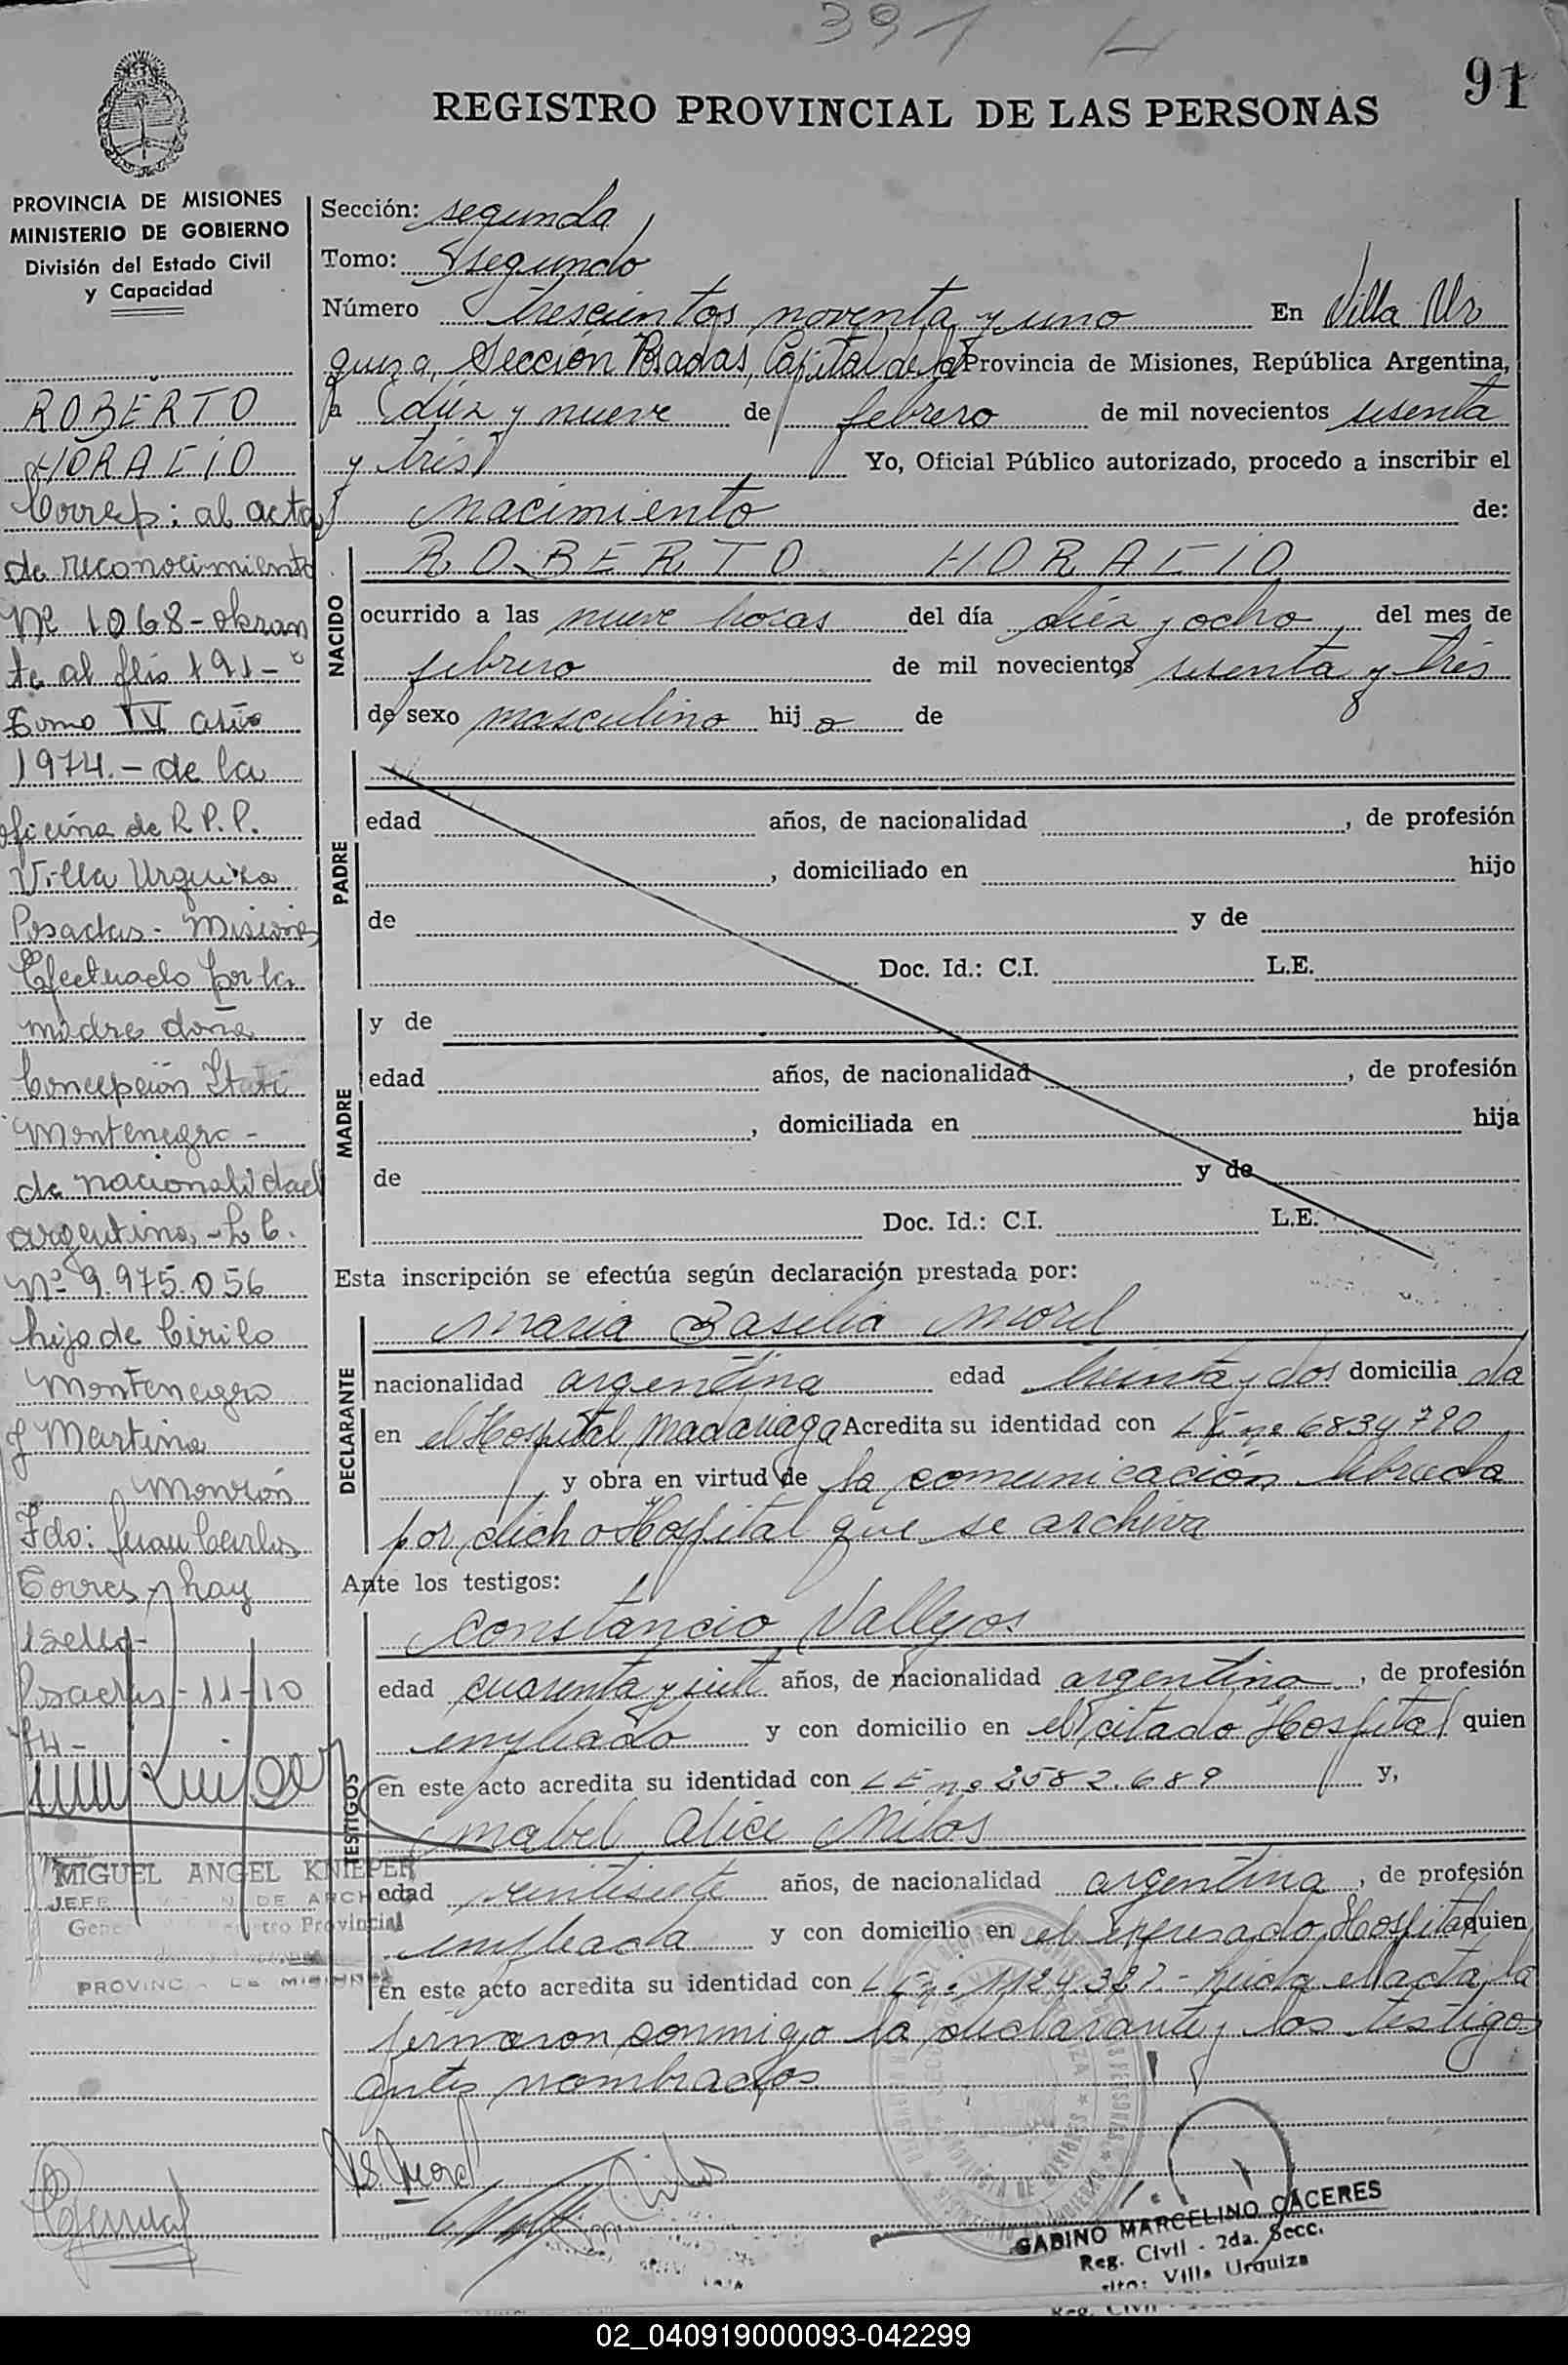 391
91
REGISTRO PROVINCIAL DE LAS PERSONAS
PROVINCIA DE MISIONES
MINISTERIO DE GOBIERNO
División del Estado Civil
y Capacidad
ROBERTO
HORACIO
Corresp: al acta
de reconocimiento
Nº 1068 - obran
te al flio 191 -
Tomo IV año
1974.- de la
oficina de R.P.P.
Villa Urquiza
Posadas - Misiones
Efectuado por la
madre doña
Concepción
Montenegro -
de nacionalidad
argentina - L C.
Nº 9.975.056
hija de Cirilo
Montenegro
y Martina
Monzón
Fdo: Juan Carlos
Torres y hay
1 sello -
Posadas - 11-10
74 -
MIGUEL ANGEL KNIEPER
JEFE DE ARCH
Gene tro Provincial
PROVINCIA DE MISIONES
Sección: segunda
Tomo: segundo
Número trescientos noventa y uno En Villa Ur
quiza, Sección Posadas, Capital de la Provincia de Misiones, República Argentina,
a diez y nueve de febrero de mil novecientos sesenta
y tres Yo, Oficial Público autorizado, procedo a inscribir el
nacimiento de:
NACIDO
ROBERTO HORACIO
ocurrido a las nueve horas del día diez y ocho, del mes de
febrero de mil novecientos sesenta y tres
de sexo masculino hijo de
PADRE
edad años, de nacionalidad , de profesión
, domiciliado en hijo
de y de
Doc. Id.: C.I. L.E.
MADRE
y de
edad años, de nacionalidad , de profesión
, domiciliada en hija
de y de
Doc. Id.: C.I. L.E.
Esta inscripción se efectúa según declaración prestada por:
DECLARANTE
Maria Basilia Morel
nacionalidad argentina edad treinta y dos domiciliada
en el Hospital Madariaga Acredita su identidad con L E nº 6834790
y obra en virtud de la comunicación librada
por dicho Hospital que se archiva
Ante los testigos:
TESTIGOS
Constancio Vallejos
edad cuarenta y siete años, de nacionalidad argentina, de profesión
empleado y con domicilio en el citado Hospital quien
en este acto acredita su identidad con L E nº 2582.689 y,
Mabel Alice Milos
edad veintisiete años, de nacionalidad argentina, de profesión
empleada y con domicilio en el expresado Hospital quien
en este acto acredita su identidad con L E nº - leida el acta, la
firmaron conmigo la declarante y los testigos
antes nombrados
B. Morel
GABINO MARCELINO CACERES
Reg. Civil - 2da. Secc.
Villa Urquiza
02_040919000093-042299